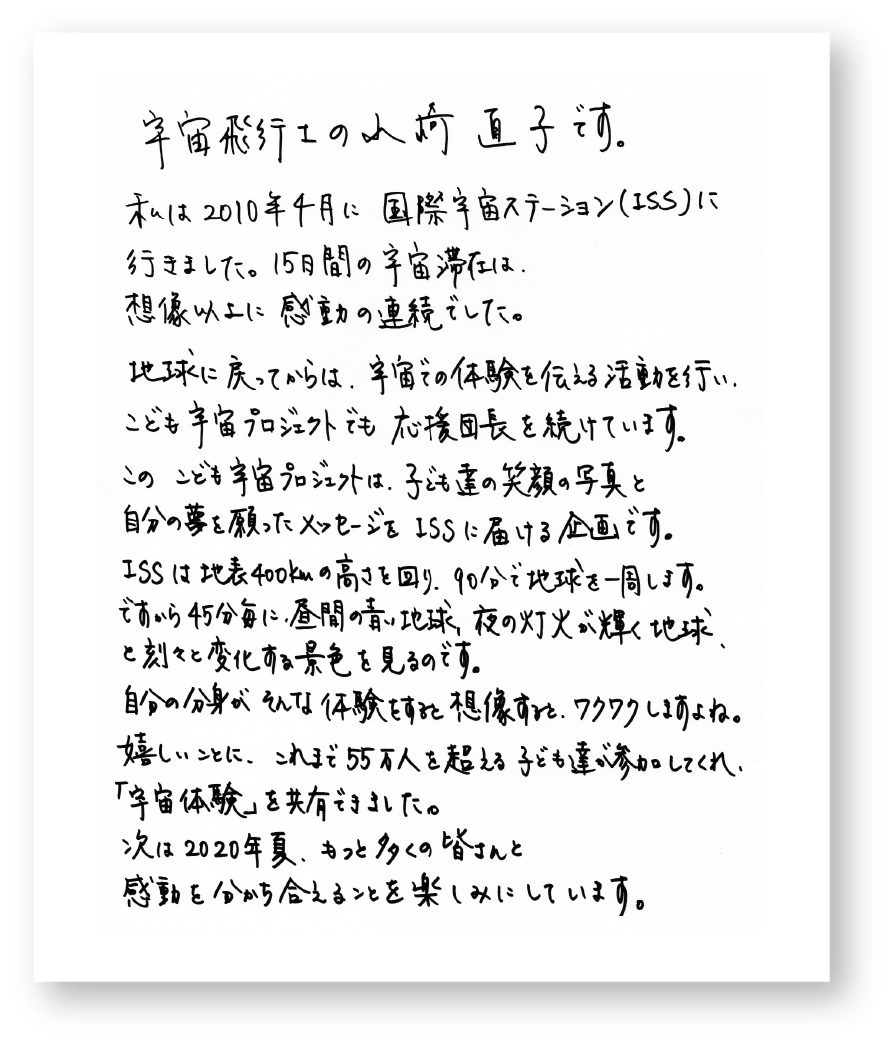 宇宙飛行士の山崎 直子です。
私は2010年4月に 国際宇宙ステーション(ISS)に
行きました。15日間の宇宙滞在は、
想像以上に 感動の連続でした。
地球に戻ってからは、宇宙での体験を伝える活動を行い、
こども宇宙プロジェクトでも 応援団長を続けています。
この こども宇宙プロジェクトは、子ども達の笑顔の写真と
自分の夢を願ったメッセージを ISSに届ける企画です。
ISSは地表400kmの高さを回り、90分で地球を一周します。
ですから45分毎に、昼間の青い地球、夜の灯火が輝く地球、
と刻々と変化する景色を見るのです。
自分の分身が そんな体験をすると想像すると、ワクワクしますよね。
嬉しいことに、これまで55万人を超える子ども達が参加してくれ、
「宇宙体験」を共有できました。
次は2020年夏、もっと多くの皆さんと
感動を分かち合えることを楽しみにしています。